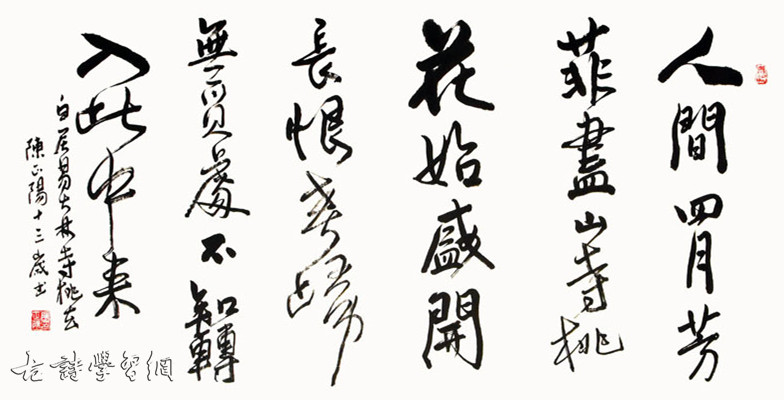 人間四月芳
菲盡山寺桃
花始盛開
長恨春歸
無覓處不知轉
入此中来
白居易大林寺桃花
陳正陽十三歲书
古詩學習網